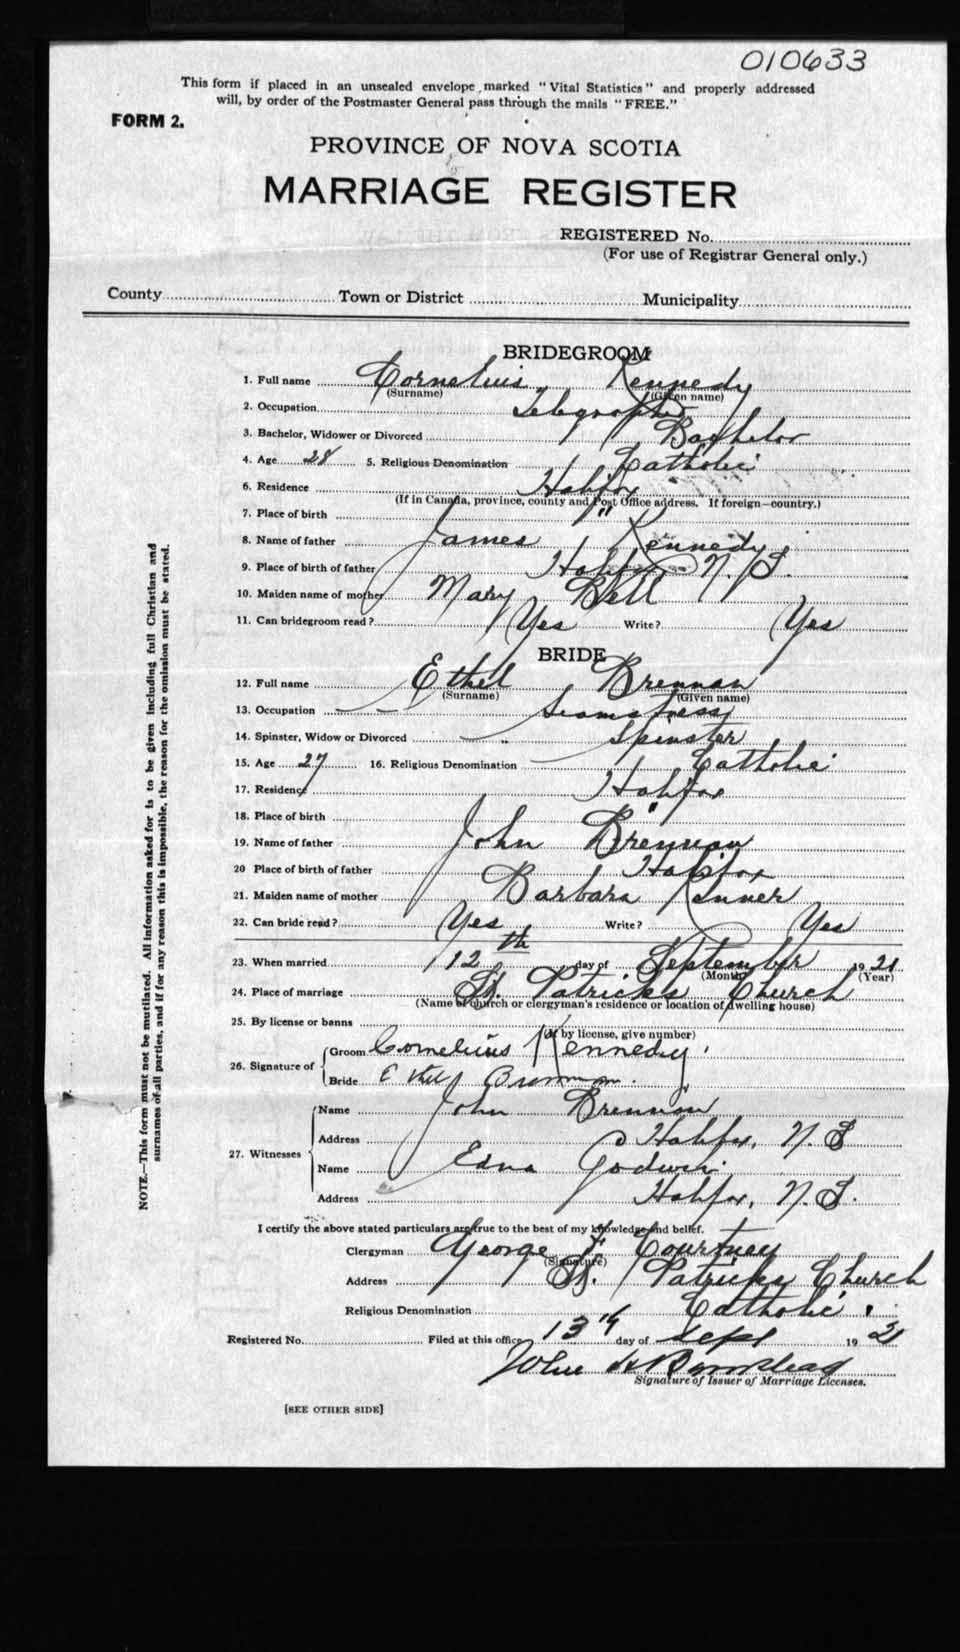 010633
This form if placed in an unsealed envelope marked "Vital Statistics" and properly addressed
will, by order of the Postmaster General pass through the mails "FREE."
FORM 2.
PROVINCE OF NOVA SCOTIA
MARRIAGE REGISTER
REGISTERED No.
(For use of Registrar General only.)
County Town or District Municipality
BRIDEGROOM
1. Full name Cornelius Kennedy
(Surname) (Given name)
2. Occupation Telegrapher
3. Bachelor, Widower or Divorced Bachelor
4. Age 28 5. Religious Denomination Catholic
6. Residence Halifax
(If in Canada, province, county and Post Office address. If foreign—country.)
7. Place of birth "
8. Name of father James Kennedy
9. Place of birth of father Halifax N.S.
10. Maiden name of mother Mary Bell
11. Can bridegroom read? Yes Write? Yes
BRIDE
12. Full name Ethel Brennan
(Surname) (Given name)
13. Occupation Seamstress
14. Spinster, Widow or Divorced Spinster
15. Age 27 16. Religious Denomination Catholic
17. Residence Halifax
18. Place of birth "
19. Name of father John Brennan
20 Place of birth of father Halifax
21. Maiden name of mother Barbara
22. Can bride read? Yes Write? Yes
23. When married 12th day of September 1921
(Month) (Year)
24. Place of marriage St. Patrick's Church
(Name of church or clergyman's residence or location of dwelling house)
25. By license or banns
(If by license, give number)
26. Signature of Groom Cornelius Kennedy
Bride Ethel Brennan.
27. Witnesses
Name John Brennan
Address Halifax, N.S
Name Edna Godwin
Address Halifax, N.S.
I certify the above stated particulars are true to the best of my knowledge and belief.
Clergyman George F Courtney
(Signature)
Address St. Patricks Church
Religious Denomination Catholic.
Registered No. Filed at this office 13th day of Sept 1921
Signature of Issuer of Marriage Licenses.
[SEE OTHER SIDE]
NOTE.—This form must not be mutilated. All information asked for is to be given including full Christian and
surnames of all parties, and if for any reason this is impossible, the reason for the omission must be stated.